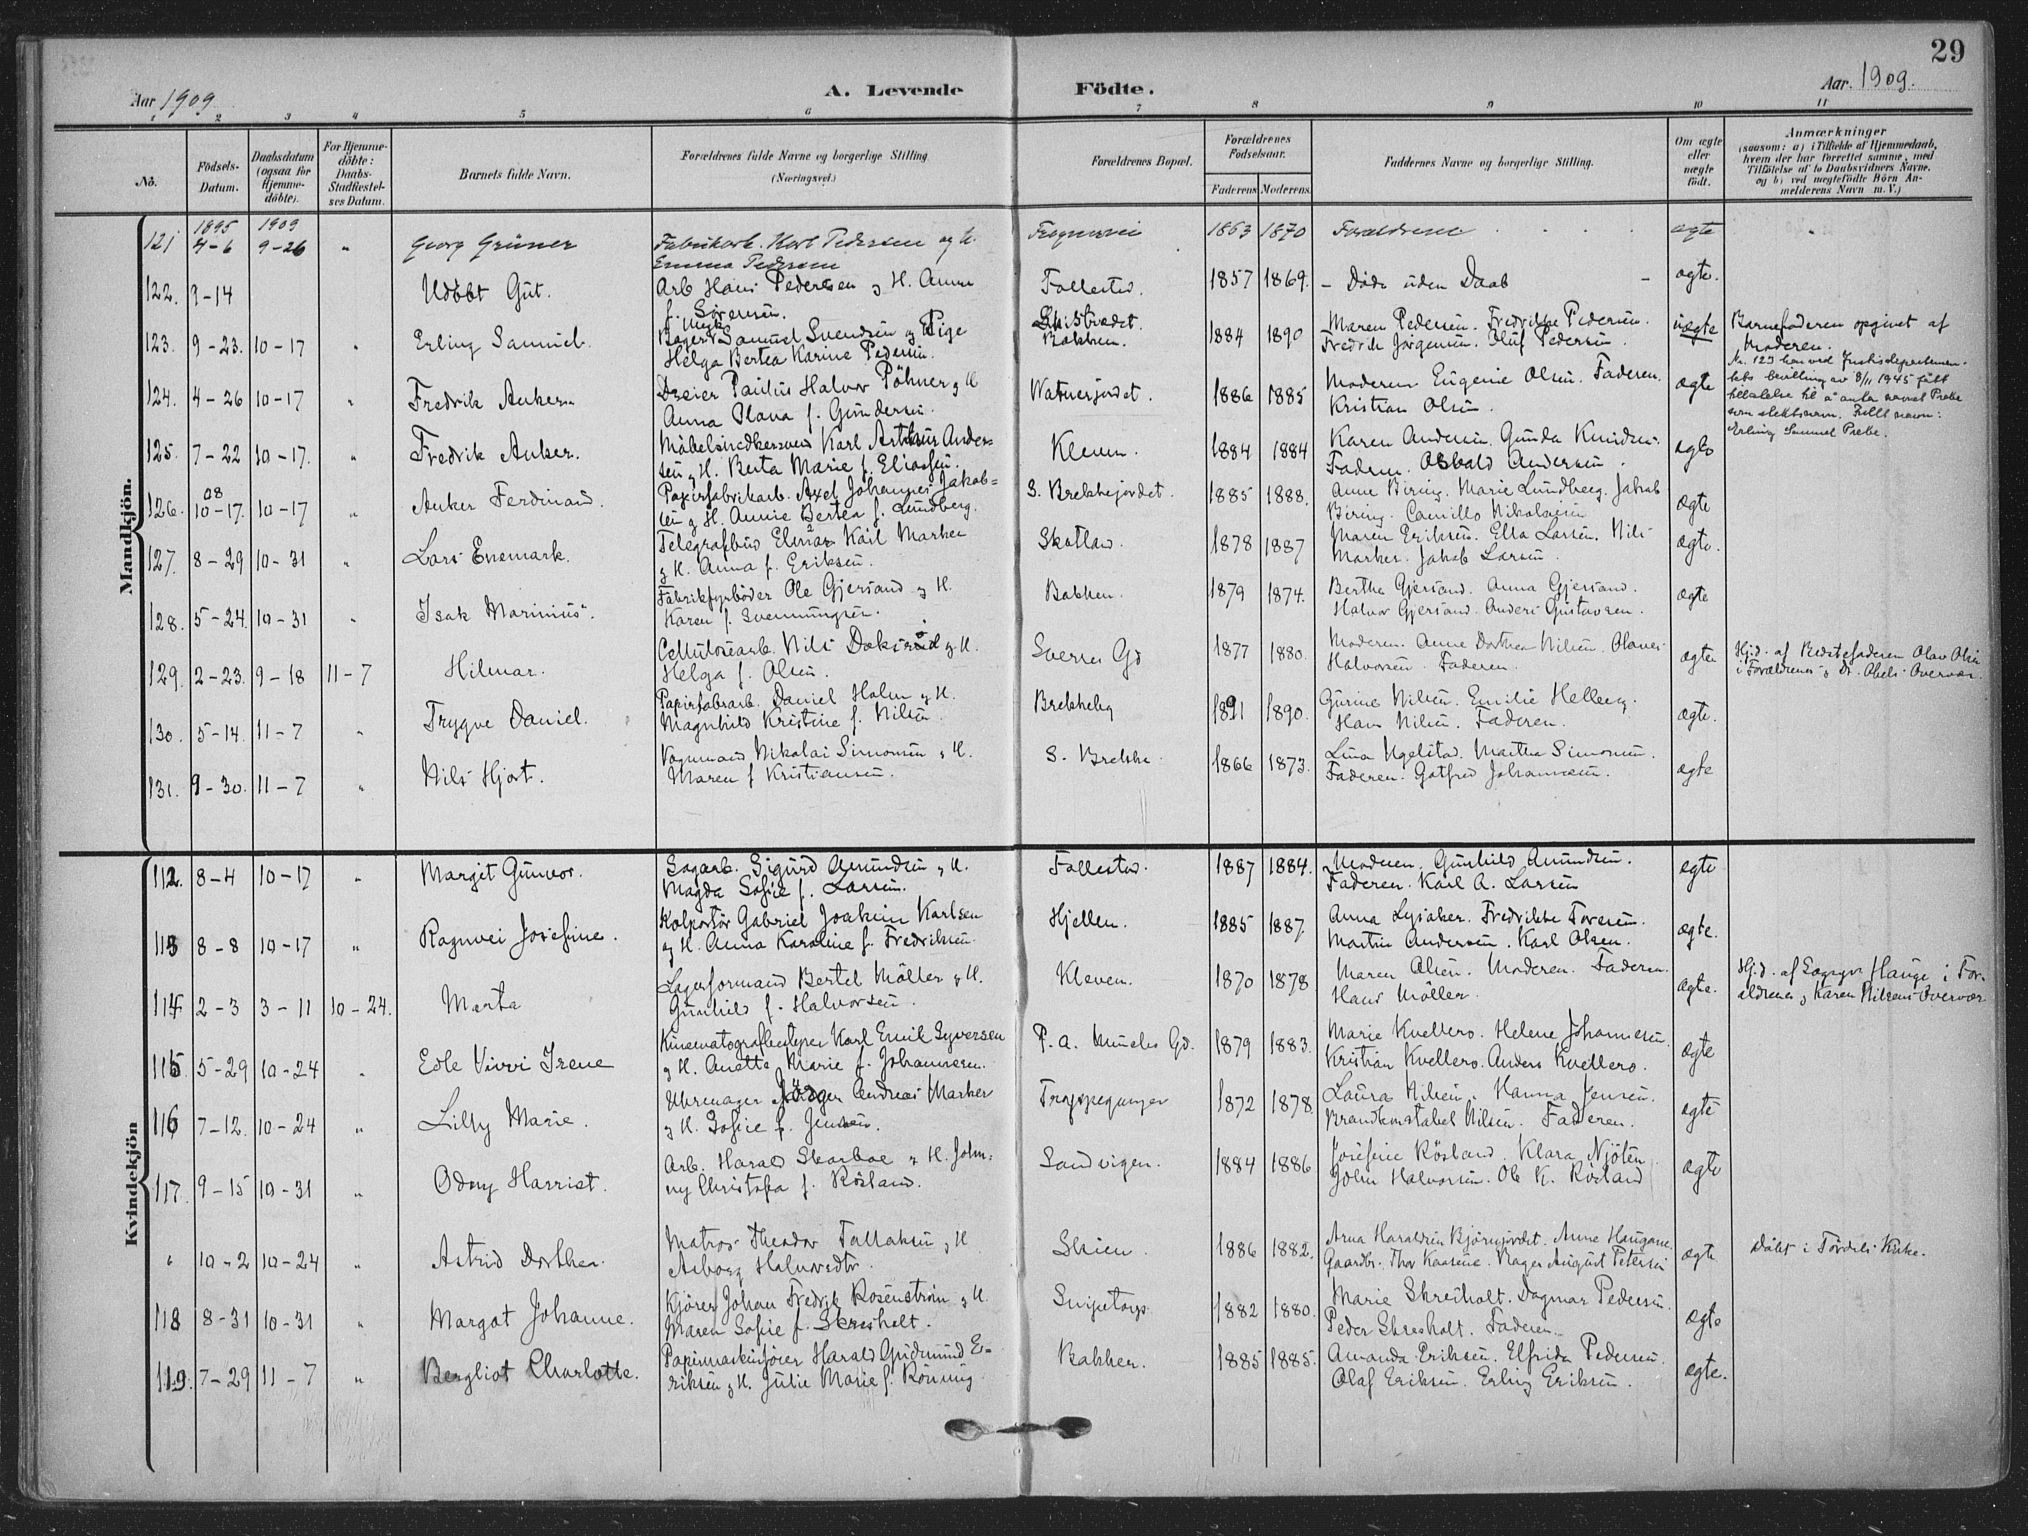 29
Aar 1909
A. Levende Födte.
Aar. 1909.
1 2 3 4 5 6 7 8 9 10 11
No.
Födsels-Datum.
Daabsdatum (ogsaa for Hjemme-döbte).
For Hjemme-döbte: Daabs-Stadfæstel-ses Datum.
Barnets fulde Navn.
Forældrenes fulde Navne og borgerlige Stilling (Næringsvei.)
Forældrenes Bopæl.
Forældrenes Födselsaar.
Faderens Moderens.
Faddernes Navne og borgerlige Stilling.
Om ægte eller uægte födt.
Anmærkninger
(saasom: a) i Tilfælde af Hjemmedaab, hvem der har forrettet samme, med Tilföielse af to Daabsvidners Navne, og b) ved uægtefödte Börn An-melderens Navn m. V.)
Mandkjön.
121 1895 4-6 1909 9-26 " Georg Grüner
Fabrikarb. Karl Pedersen og H.
Emma Pedersen
Frognervei 1863 1870 Forældrene ægte "
122. 9-14 Udöbt Gut.
Arb Hans Pedersen og H. Anne
f. Sörensen.
Follestad. 1857 1869. - Döde uden Daab - ægte.
123. 9-23. 10-17 " Erling Samuel.
Bager Samuel Svendsen og Pige
Helga Bertea Karine Pedersen.
Bakken. 1884 1890
Maren Pedersen. Fredrikke Pedersen.
Fredrik Jörgensen. Oluf Pedersen.
uægte
Barnefaderen opgivet af
Moderen.
Nr. 123 har ved Justisdepartemen-
tets bevilling av 8/11 1945 fått
tillatelse til å anta navnet Prebe
som slektsnavn. Fullt navn:
Erling Samuel Prebe.
124. 4-26 10-17 " Fredrik Ankern
Dreier Paulus Halvor Pöhner og H
Anna Olava f. Gundersen.
1886 1885
Moderen Eugenie Olsen. Faderen.
Kristian Olsen.
ægte
125. 7-22 10-17. " Fredrik Anker.
Möbelsnedkersvend Karl Arthur Ander-
sen og H. Berta Marie f. Eliassen.
Kleven. 1884 1884
Karen Andersen. Gunda Knudsen.
Faderen. Osvald Andersen.
ægte
126. 08 10-17. 10-17 " Anker Ferdinand.
Papirfabrikarb. Axel Johannes Jakob-
sen og H. Annie Bertea f. Lundberg.
S. Brekkejordet. 1885 1888.
Anne Biring. Marie Lundberg. Jakob
Biring. Camillo Nikolaisen
ægte
127. 8-29 10-31 " Lars Enemark.
Telegrafbud Elmar Karl Marker
og H. Anna f. Eriksen.
Skotland 1878 1887
Maren Eriksen. Ella Larsen. Nils
Marker. Jakob Larsen.
ægte.
128. 5-24. 10-31 " Isak Marinius.
Fabrikfyrböder Ole Gjersund og H.
Karen f. Svenningsen.
Bakken. 1879 1874.
Berthe Gjersund. Anna Gjersund.
Halvor Gjersund. Anders Gustavsen.
ægte
129. 2-23. 9-18 11-7 Hilmar.
Cellulosearb. Nils Dokserød og H.
Helga f. Olsen.
Sverres Gd 1877 1880.
Moderen. Anne Dorthea Nilsen. Olaves
Halvorsen. Faderen.
ægte
Hjd. af Bedstefaderen Olav Olsen
i Forældrenes og Dr. Abels Overvær.
130. 5-14. 11-7 " Trygve Daniel.
Papirfabarb. Daniel Holm og H.
Magnhild Kristine f. Nilsen.
Brekkeby 1891 1890.
Gurine Nilsen. Emilie Helberg.
Hans Nilsen. Faderen.
ægte.
131. 9-30. 11-7 " Nils Hjort.
Vognmand Nikolai Simonsen og H.
Maren f Kristiansen.
S. Brekke. 1866 1873.
Lina Ugelstad. Martha Simonsen
Faderen. Gotfred Johannesen.
ægte
Kvindekjön
112. 8-4 10-17 " Margit Gunvor.
Sagarb. Sigurd Amundsen og H.
Magda Sofie f. Larsen.
Follestad. 1887 1884.
Moderen. Gunhild Amundsen.
Faderen. Karl A. Larsen
ægte
113 8-8 10-17 " Ragnvei Josefine.
Kolportör Gabriel Joakim Karlsen
og H. Anna Karoline f. Fredriksen.
Hjellen. 1885 1887.
Anna Lysaker. Fredrikke Toresen.
Martin Andersen. Karl Olsen.
ægte.
114 2-3 3-11 10-24. Marta
Lagerformand Bertel Möller og H.
Gunhild f. Halvorsen.
Kleven. 1870 1878
Maren Olsen. Moderen. Faderen.
Hans Möller.
ægte.
Hjd. af Sogepr Hauge i For-
ældrenes og Karen Nilsens Overvær
115 5-29 10-24 " Edle Vivvi Irene
Kinematografbestyrer Karl Emil Syversen
og H. Anette Marie f. Johannesen.
P. A. Munchs Gd. 1879 1883.
Marie Kvellero. Helene Johannesen.
Kristian Kvellero. Anders Kvellero.
ægte
116 7-12. 10-24 " Lilly Marie.
Uhrmager Jörger Andreas Marker
og H. Sofie f. Jensen.
1872 1878.
Laura Nilsen. Hanna Jensen.
Brandkonstabel Nilsen. Faderen.
ægte
117. 9-15 10-31 " Odny Harriet.
Arb. Harald Skarboe og H. John-
ny Christofa f. Rösland.
Sandvigen. 1884 1886
Josefine Rösland. Klara Njöten
John Halvorsen. Ole K. Rösland
ægte
" 10-2 10-24 " Astrid Dorthea.
Matros Theodor Tallaksen og H
Asborg Halvorsdtr.
Skien. 1886 1882.
Anna Haraldsen Björnjordet. Anne Haugane.
Gaardbr. Thor Kaasene. Bager August Petersen
ægte
Döbt i Fördels Kirke.
118 8-31 10-31 " Margot Johanne.
Kjörer Johan Fredrik Rosenström og H.
Maren Sofie f. Skreiholt.
Snipetorp 1882 1880.
Marie Skreiholt. Dagmar Pedersen.
Peder Skreiholt. Faderen.
ægte
119. 7-29 11-7 " Bergliot Charlotte.
Papirmaskinförer Harald Gudmund E-
riksen og H. Julie Marie f. Rönning
Bakken. 1885 1885.
Amanda Eriksen. Elfrida Pedersen.
Olaf Eriksen. Erling Eriksen.
ægte.